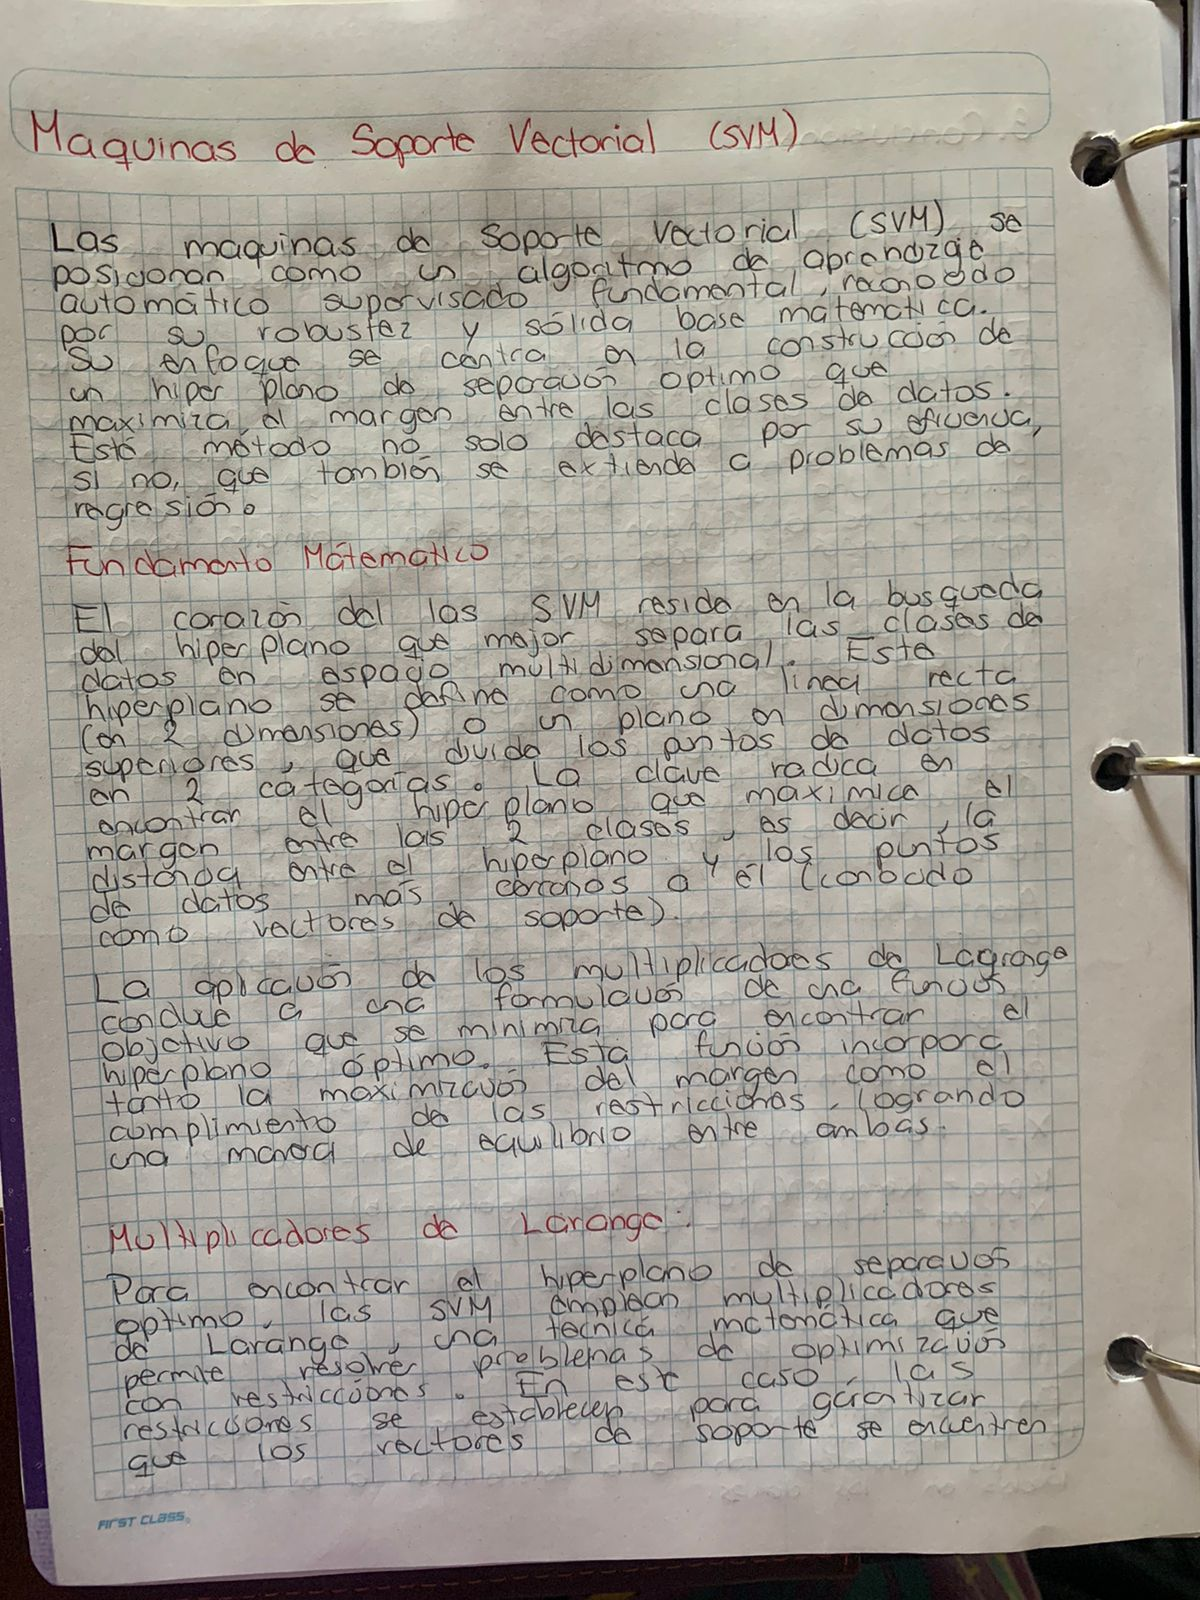 Maquinas de Soporte Vectorial (SVM)
Las maquinas de Soporte Vectorial (SVM) se
posicionan como un algoritmo de aprendizaje
automático supervisado fundamental, reconocido
por su robustez y sólida base matematica.
Su enfoque se centra en la construcción de
un hiper plano de separación optimo que
maximiza el margen entre las clases de datos.
Esté método no solo destaca por su eficiencia,
si no, que también se extiende a problemas de
regresión.
Fundamento Matematico
El corazón del las SVM reside en la busqueda
del hiperplano que mejor separa las clases de
datos en espacio multidimensional. Este
hiperplano se define como una linea recta
(en 2 dimensiones) o un plano en dimensiones
superiores, que divide los puntos de datos
en 2 categorías. La clave radica en
encontrar el hiperplano que maximice el
margen entre las 2 clases, es decir, la
distancia entre el hiperplano y los puntos
de datos más cercanos a él (conocido
como vectores de soporte).
La aplicación de los multiplicadores de Lagrange
conduce a una formulación de una función
objetivo que se minimiza para encontrar el
hiperplano óptimo. Está función incorpora
tanto la maximización del margen como el
cumplimiento de las restricciones, logrando
una manera de equilibrio entre ambas.
Multiplicadores de Larange:
Para encontrar el hiperplano de separación
optimo, las SVM emplean multiplicadores
de Larange, una técnica matemática que
permite resolver problemas de optimización
con restricciones. En este caso, las
restricciones se establecen para garantizar
que los vectores de soporte se encuentren
FIRST CLASS